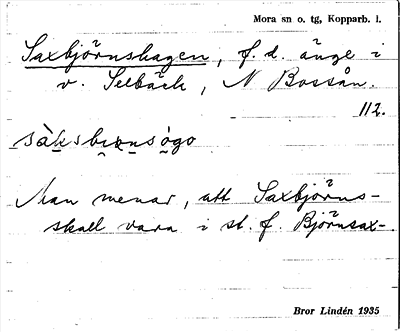 Mora sn o. tg, Kopparb. l.
Saxbjörnshagen, f. d. änge i
v. Selbäck, N Bossån.
112.
Man menar, att Saxbjörns-
skall vara i st. f. Björnsax-.
Bror Lindén 1935